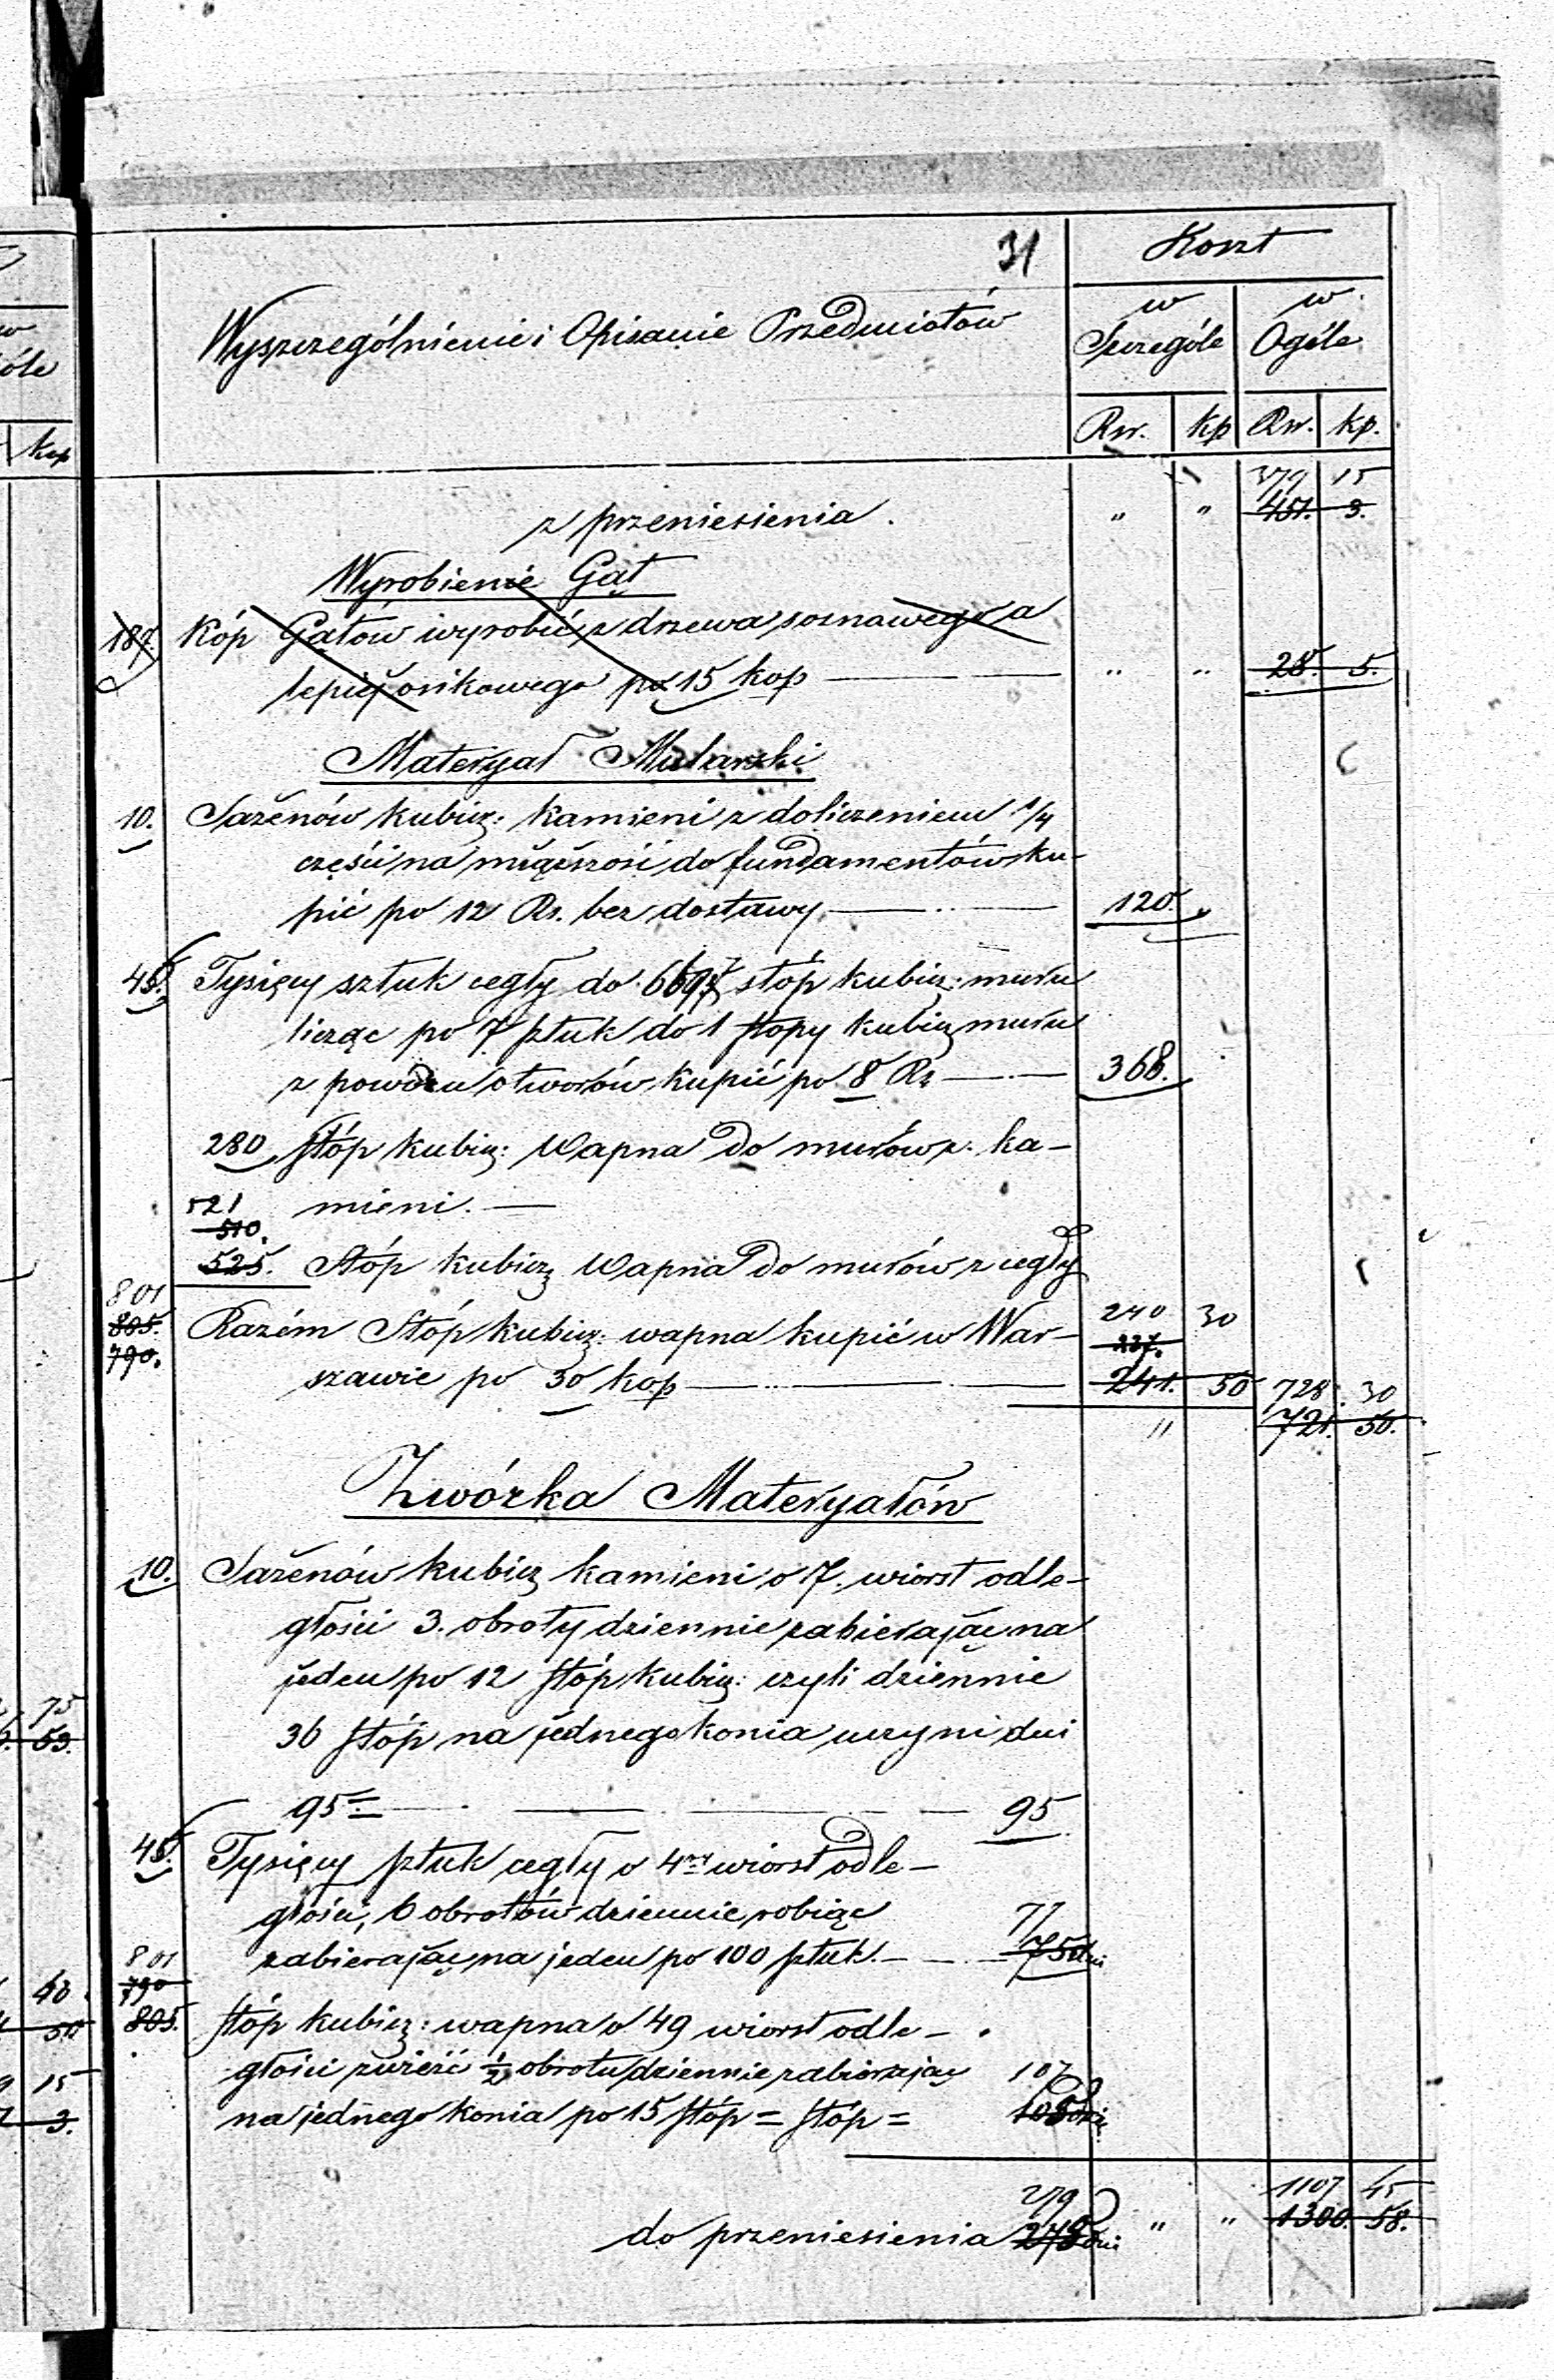 31
Koszt
Wyszczególnienie i Opisanie Przedmiotów
w Szczególe
w Ogóle
Rsr. kp Rsr. kp.
379 15
z przeniesienia. " " 451. 3.
Wyrobienie Gąt
187. Kóp Gątów wyrobić z drzewa sosnowego a
lepiej osikowego po 15 kop " " 28. 5.
Materyał Mularski
10. Sażenów kubicz: kamieni z doliczeniem 1/4
części na miąższość do fundamentów ku-
pić po 12 Rs. bez dostawy 120. "
46. Tysięcy sztuk cegły do 6697 stóp kubicz: muru
licząc po 7 sztuk do 1 stopy kubicz muru
z powodu otworów kupić po 8 Rs 368.
280 stóp kubicz: Wapna do murów z ka-
521 mieni.
510.
525. Stóp kubicz Wapna do murów z cegły
801
805. Razém Stóp kubicz: wapna kupić w War- 240 30
790. 237.
szawie po 30 kop 241. 50 728. 30
" 721. 50.
Zwózka Materyałów
10. Sażenów kubicz kamieni o 7. wiorst odle-
głości 3. obroty dziennie zabierając na
jeden po 12 stóp kubicz: czyli dziennie
36 stóp na jednego konia uczyni dni
95 = 95
46. Tysięcy sztuk cegły o 4ry wiorst odle-
głości, 6 obrotów dziennie robiąc 77
zabierając na jeden po 100 sztuk. 75 dni
801
790
805. stóp kubicz: wapna o 49 wiorst odle-
głości zwieźć 1/2 obrotu dziennie zabierając 107
na jednego konia po 15 stóp = stóp = 108 dni
279 1107 45
do przeniesienia 278 dni " " 1300. 58.
óle
kop
75
53.
40
50
15
3.